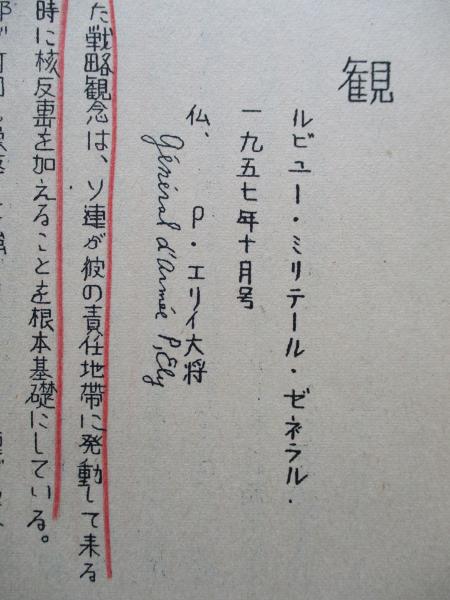 観
ルビュー・ミリテール・ゼネラル・
一九五七年十月号
仏、P・エリイ大将
Général d'Armée P. Ely
た戦略観念は、ソ連が彼の責任地帯に発動して来る
時に核反撃を加えることを根本基礎にしている。